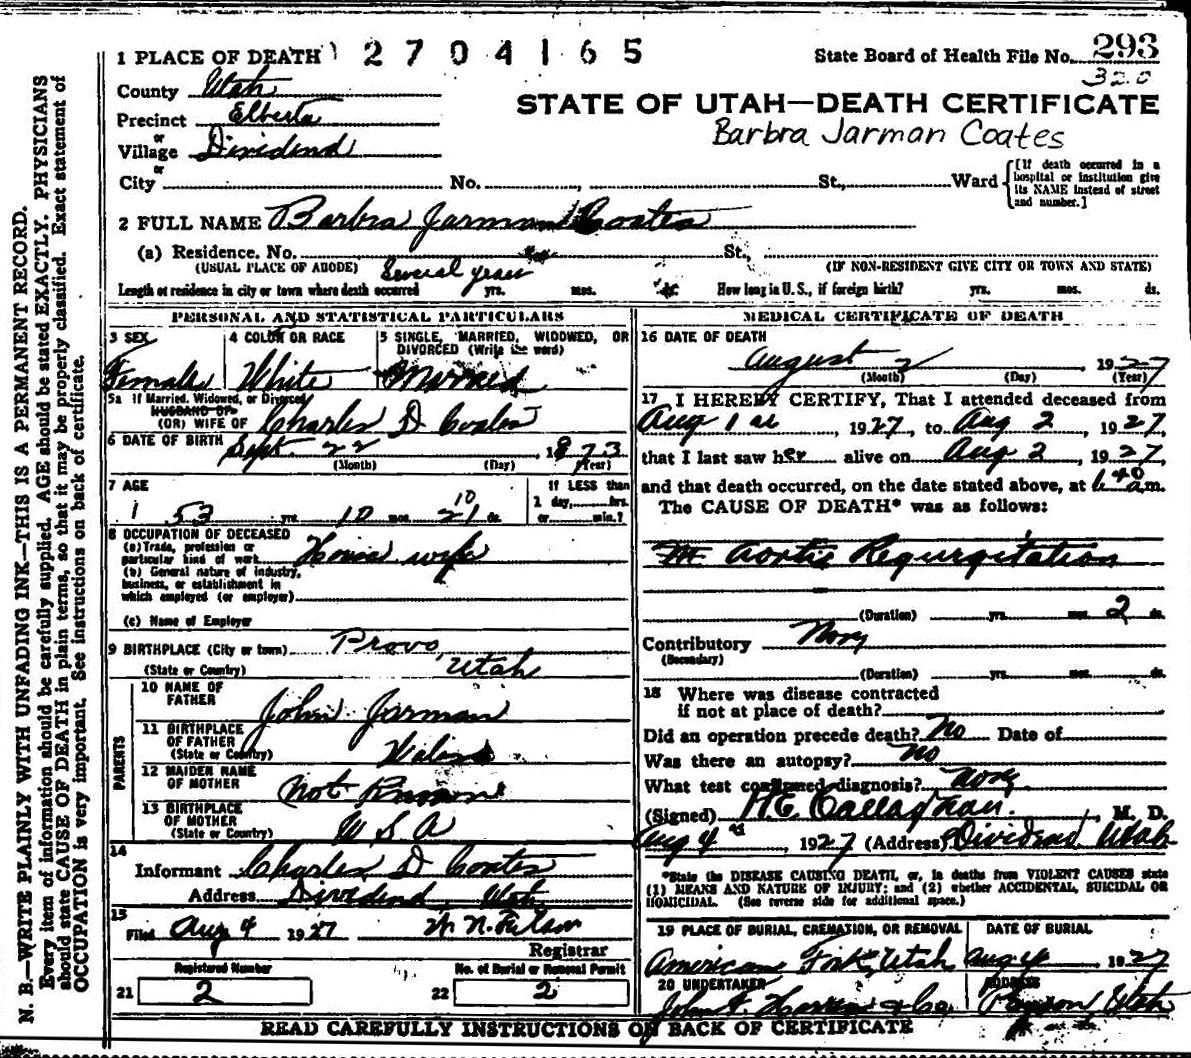 1 PLACE OF DEATH 2704165 State Board of Health File No. 293
320
County Utah
STATE OF UTAH—DEATH CERTIFICATE
Precinct Elberta
Barbra Jarman Coates
or
Village Dividend
or
City No. , St., Ward
[If death occurred in a
hospital or institution give
its NAME instead of street
and number.]
2 FULL NAME Barbra Jarman Coates
(a) Residence. No. St.,
(USUAL PLACE OF ABODE) (IF NON-RESIDENT GIVE CITY OR TOWN AND STATE)
Several years
Length of residence in city or town where death occurred yrs. mos. How long in U.S., if foreign birth? yrs. mos. ds.
PERSONAL AND STATISTICAL PARTICULARS
3 SEX 4 COLOR OR RACE 5 SINGLE, MARRIED, WIDOWED, OR
DIVORCED (Write the word)
Female White Married
5a If Married, Widowed, or Divorced
HUSBAND OF
(OR) WIFE OF Charles D Coates
6 DATE OF BIRTH Sept. 22 1873
(Month) (Day) (Year)
7 AGE If LESS than
1 day, hrs.
or min.?
10
53 yrs. 10 mos. 21 ds.
8 OCCUPATION OF DECEASED
(a) Trade, profession or
particular kind of work House wife
(b) General nature of industry,
business, or establishment in
which employed (or employer)
(c) Name of Employer
9 BIRTHPLACE (City or town) Provo,
(State or Country) Utah
PARENTS
10 NAME OF
FATHER John Jarman
11 BIRTHPLACE
OF FATHER
(State or Country) Wales
12 MAIDEN NAME
OF MOTHER Not Known
13 BIRTHPLACE
OF MOTHER
(State or Country) U S A
14
Informant Charles D Coates
Address Dividend Utah
15
Filed Aug 4 1927
Registrar
Registered Number No. of Burial or Removal Permit
21 2 22 2
MEDICAL CERTIFICATE OF DEATH
16 DATE OF DEATH
August 2 1927
(Month) (Day) (Year)
17 I HEREBY CERTIFY, That I attended deceased from
Aug 1 1927, to Aug 2, 1927,
that I last saw her alive on Aug 2, 1927,
and that death occurred, on the date stated above, at 6 40 am.
The CAUSE OF DEATH* was as follows:
Aortic Regurgitation
(Duration) yrs. mos. 2 ds.
Contributory
(Secondary)
(Duration) yrs. mos. ds.
18 Where was disease contracted
if not at place of death?
Did an operation precede death? No Date of
Was there an autopsy? No
What test confirmed diagnosis?
(Signed) Callaghan, M. D.
Aug 4, 1927 (Address) Dividend, Utah
*State the DISEASE CAUSING DEATH, or, in deaths from VIOLENT CAUSES state
(1) MEANS AND NATURE OF INJURY; and (2) whether ACCIDENTAL, SUICIDAL OR
HOMICIDAL. (See reverse side for additional space.)
19 PLACE OF BURIAL, CREMATION, OR REMOVAL DATE OF BURIAL
American Fork, Utah Aug 4, 1927
20 UNDERTAKER ADDRESS
John F. & Co Payson, Utah
READ CAREFULLY INSTRUCTIONS ON BACK OF CERTIFICATE
N. B.—WRITE PLAINLY WITH UNFADING INK—THIS IS A PERMANENT RECORD.
Every item of information should be carefully supplied. AGE should be stated EXACTLY. PHYSICIANS
should state CAUSE OF DEATH in plain terms, so that it may be properly classified. Exact statement of
OCCUPATION is very important. See instructions on back of certificate.